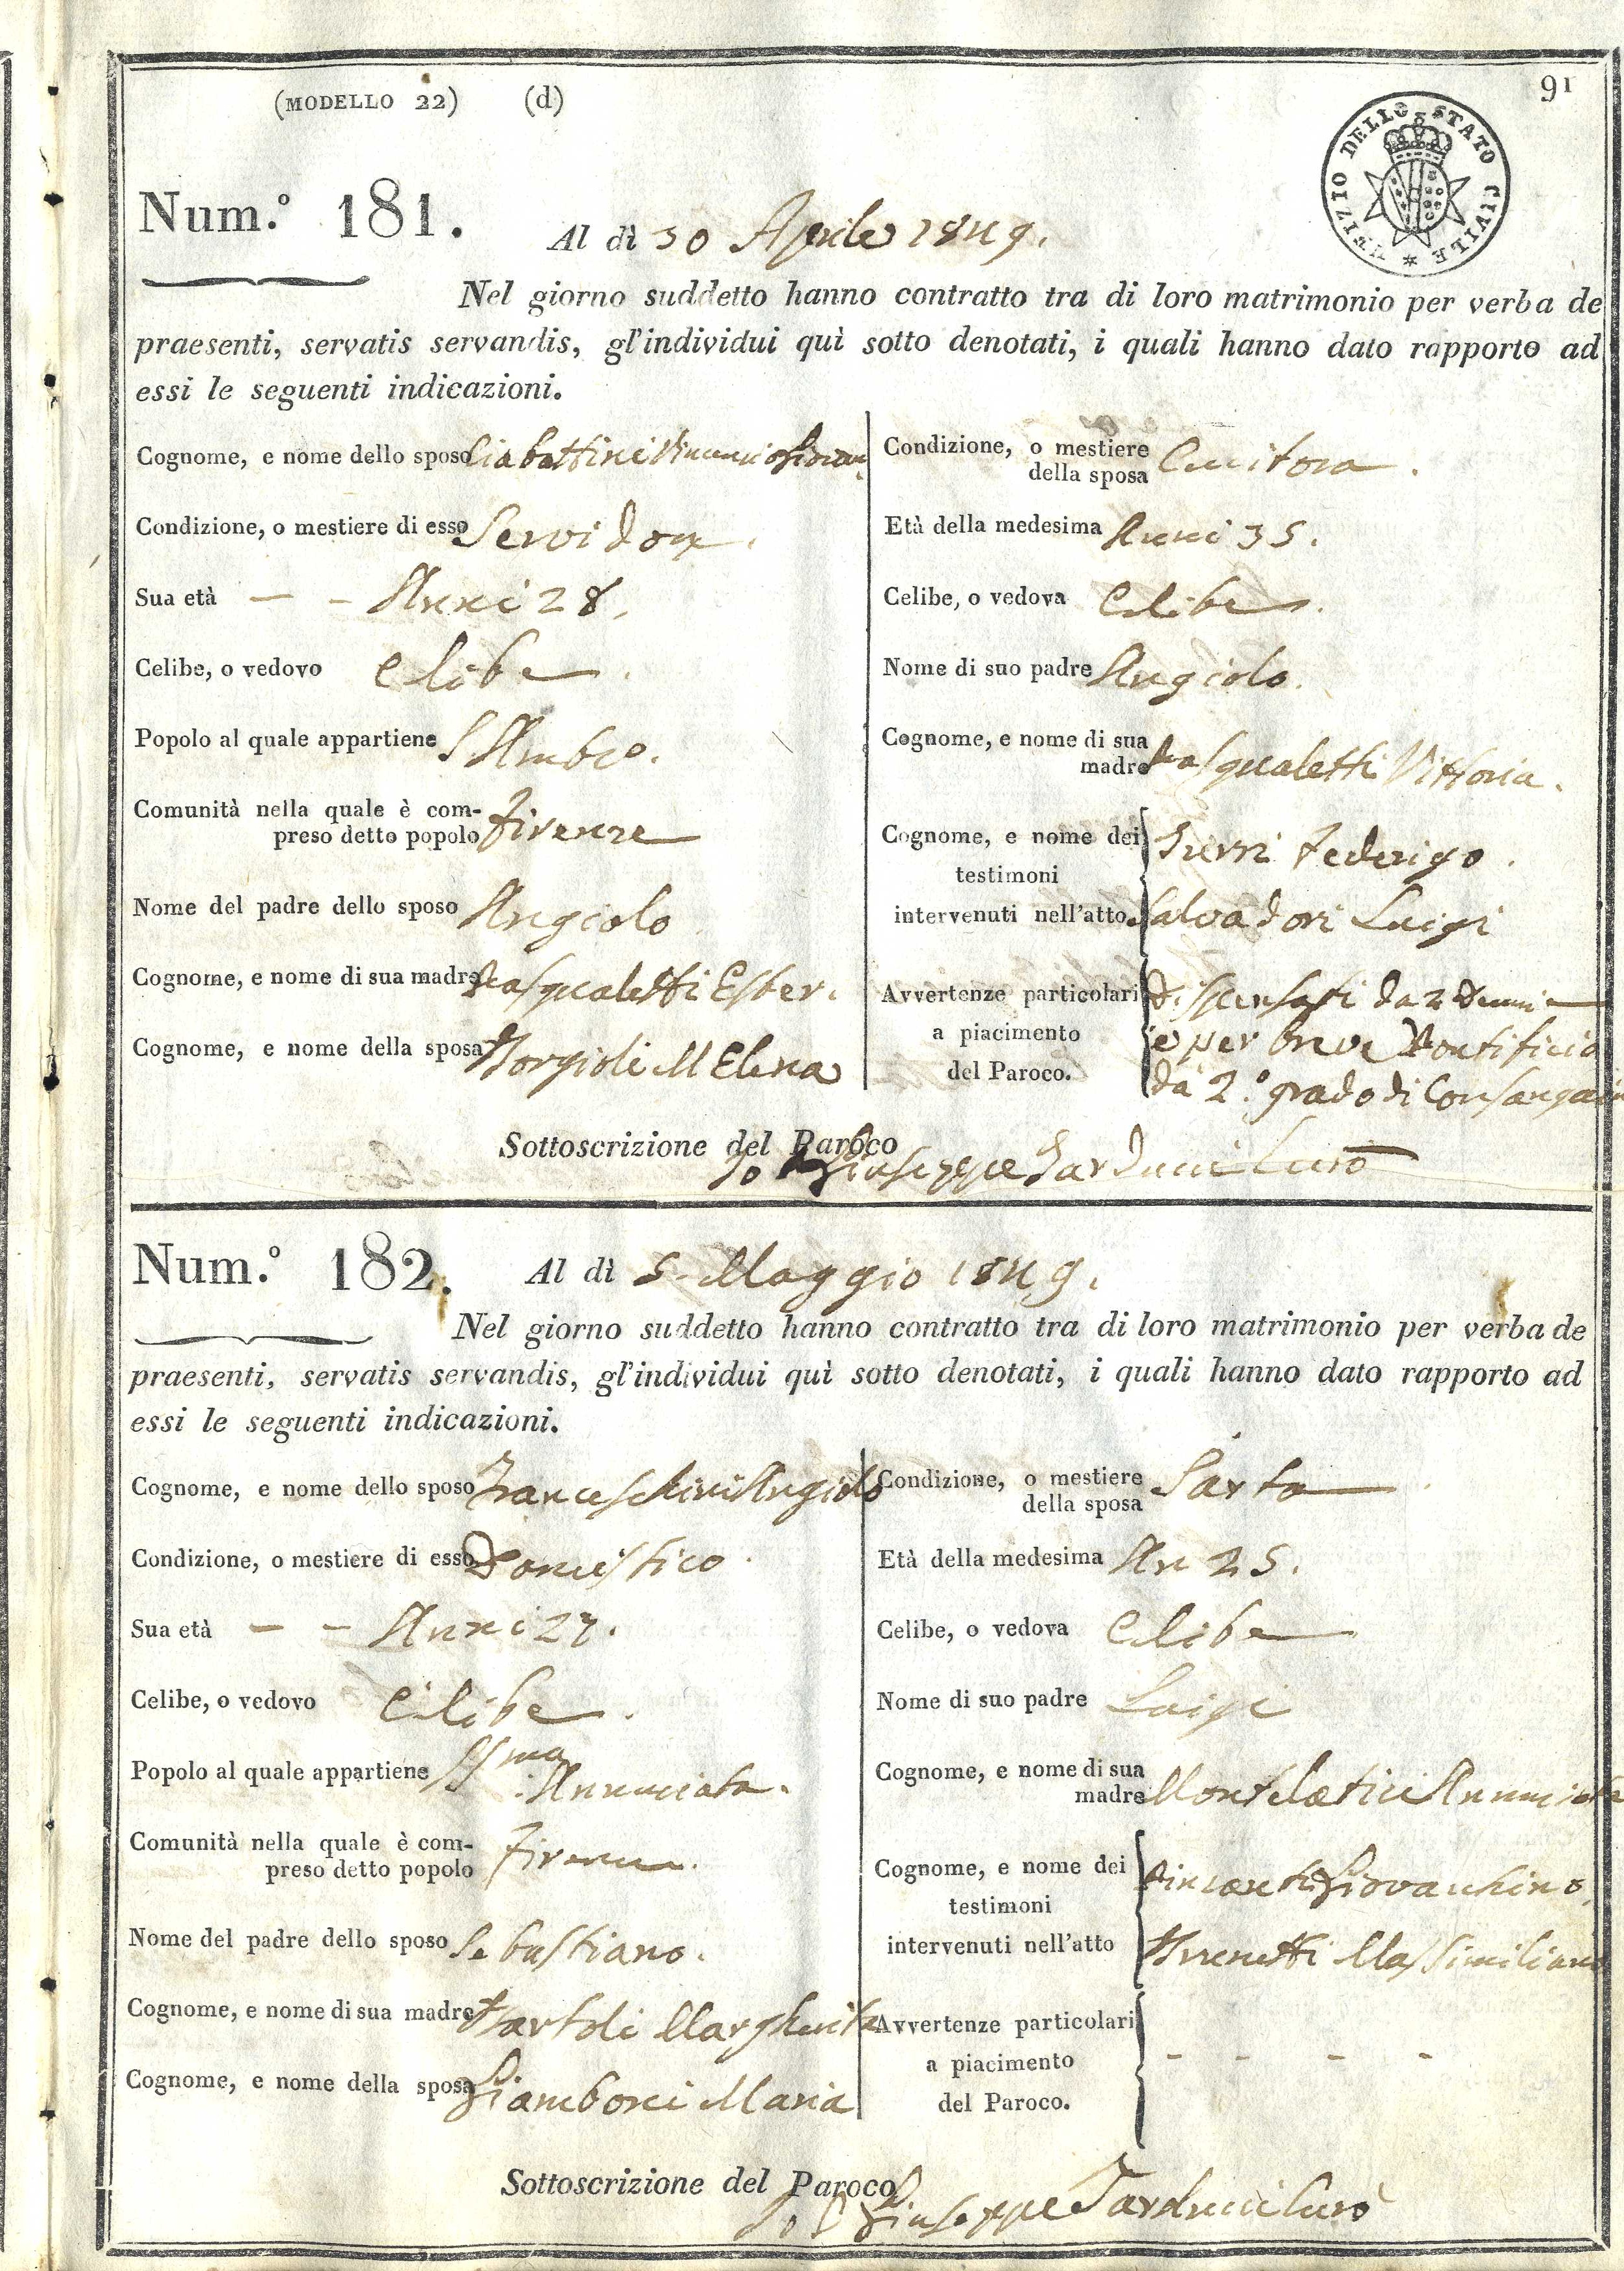 (MODELLO 22) (d)
91
UFIZIO DELLO STATO CIVILE
Num.º 181. Al dì 30 Aprile 1849.
Nel giorno suddetto hanno contratto tra di loro matrimonio per verba de
praesenti, servatis servandis, gl'individui quì sotto denotati, i quali hanno dato rapporto ad
essi le seguenti indicazioni.
Cognome, e nome dello sposo Ciabattini
Condizione, o mestiere di esso Servidore
Sua età — — Anni 28.
Celibe, o vedovo Celibe.
Popolo al quale appartiene S Ambº.
Comunità nella quale è com-
preso detto popolo Firenze
Nome del padre dello sposo Angiolo
Cognome, e nome di sua madre Pasqualetti Ester.
Cognome, e nome della sposa Borgioli M Elena
Condizione, o mestiere
della sposa Cucitora.
Età della medesima Anni 35.
Celibe, o vedova Celibe.
Nome di suo padre Angiolo.
Cognome, e nome di sua
madre Pasqualetti Vittoria.
Cognome, e nome dei
testimoni
intervenuti nell'atto
Federigo.
Salvadori Luigi
Avvertenze particolari
a piacimento
del Paroco.
Dispensati da 2 Denunie
e per breve Pontificio
da 2.º grado di Consanguin
Sottoscrizione del Paroco
Io P Giuseppe Tarducci Curº
Num.º 182. Al dì 5. Maggio 1849.
Nel giorno suddetto hanno contratto tra di loro matrimonio per verba de
praesenti, servatis servandis, gl'individui quì sotto denotati, i quali hanno dato rapporto ad
essi le seguenti indicazioni.
Cognome, e nome dello sposo Franceschini Angiolo
Condizione, o mestiere di esso Domestico.
Sua età — — Anni 27.
Celibe, o vedovo Celibe.
Popolo al quale appartiene SSma. Annunciata.
Comunità nella quale è com-
preso detto popolo Firenze.
Nome del padre dello sposo Sebastiano.
Cognome, e nome di sua madre Bartoli Margherita
Cognome, e nome della sposa Giamboni Maria
Condizione, o mestiere
della sposa Sarta.
Età della medesima An 25.
Celibe, o vedova Celibe
Nome di suo padre Luigi
Cognome, e nome di sua
madre Montelatici Annunciata
Cognome, e nome dei
testimoni
intervenuti nell'atto
Giovacchino.
Brunetti Massimiliano
Avvertenze particolari
a piacimento
del Paroco.
- - - -
Sottoscrizione del Paroco
Io P Giuseppe Tarducci Curº